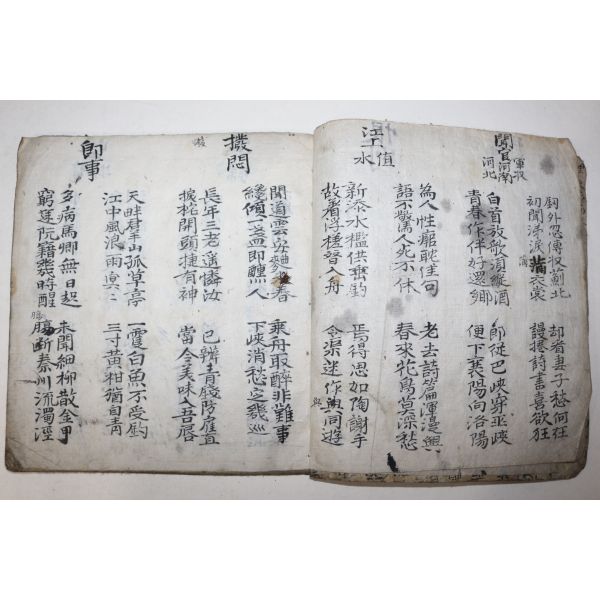 聞官軍收河南河北
釖外忽傳收薊北 却看妻子愁何在
初聞涕淚滿衣裳 謾捲詩書喜欲狂
白首放歌須縱酒 即從巴峽穿巫峽
青春作伴好還鄉 便下襄陽向洛陽
江上值水
為人性癖耽佳句 老去詩篇渾漫興
語不驚人死不休 春來花鳥莫深愁
新添水檻供垂釣 焉得思如陶謝手
故着浮槎替入舟 令渠迷作興同遊
與
撥悶
聞道雲安麯春 乘舟取醉非難事
纔傾一盞即醺人 下峽消愁定幾巡
長年三老遙憐汝 已辨青錢防雇直
捩柁開頭捷有神 當令美味入吾唇
即事
天畔羣山孤草亭 一雙白魚不受釣
江中風浪雨冥〻 三寸黃柑猶自青
多病馬卿無日起 未聞細柳散金甲
窮途阮籍幾時醒 腸斷秦川流濁涇